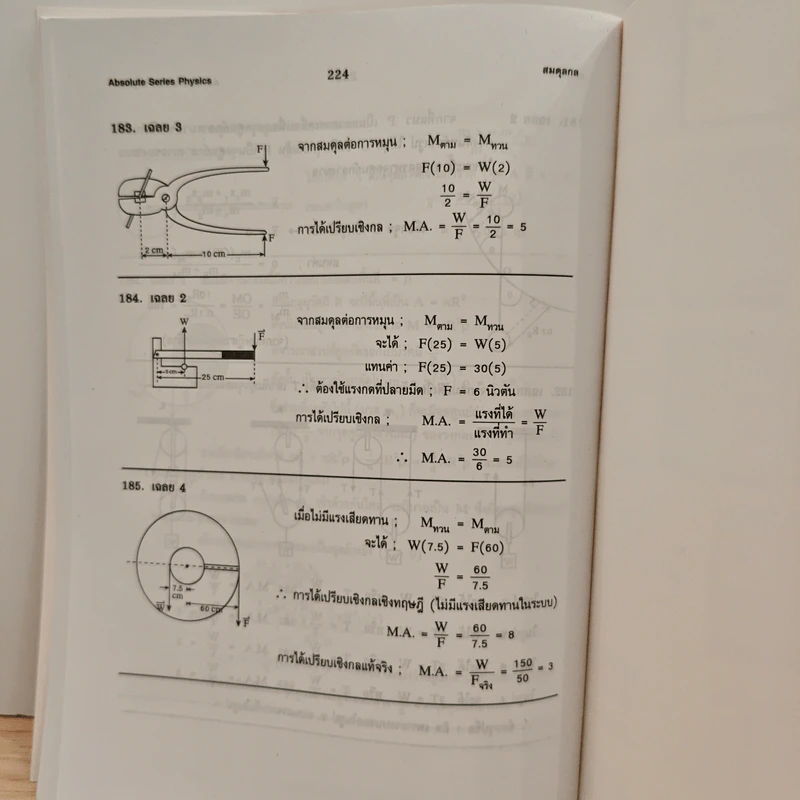 Absolute Series Physics
224
สมดุลกล
183. เฉลย 3
F
F
2 cm
10 cm
จากสมดุลต่อการหมุน ; Mตาม = Mทวน
F(10) = W(2)
10/2 = W/F
การได้เปรียบเชิงกล ; M.A. = W/F = 10/2 = 5
184. เฉลย 2
W
F
5 cm
25 cm
จากสมดุลต่อการหมุน ; Mตาม = Mทวน
จะได้ ; F(25) = W(5)
แทนค่า ; F(25) = 30(5)
∴ ต้องใช้แรงกดที่ปลายมีด ; F = 6 นิวตัน
การได้เปรียบเชิงกล ; M.A. = แรงที่ได้/แรงที่ทำ = W/F
∴ M.A. = 30/6 = 5
185. เฉลย 4
7.5
cm
60 cm
W
F
เมื่อไม่มีแรงเสียดทาน ; Mทวน = Mตาม
จะได้ ; W(7.5) = F(60)
W/F = 60/7.5
∴ การได้เปรียบเชิงกลเชิงทฤษฎี (ไม่มีแรงเสียดทานในระบบ)
M.A. = W/F = 60/7.5 = 8
การได้เปรียบเชิงกลแท้จริง ; M.A. = W/Fจริง = 150/50 = 3